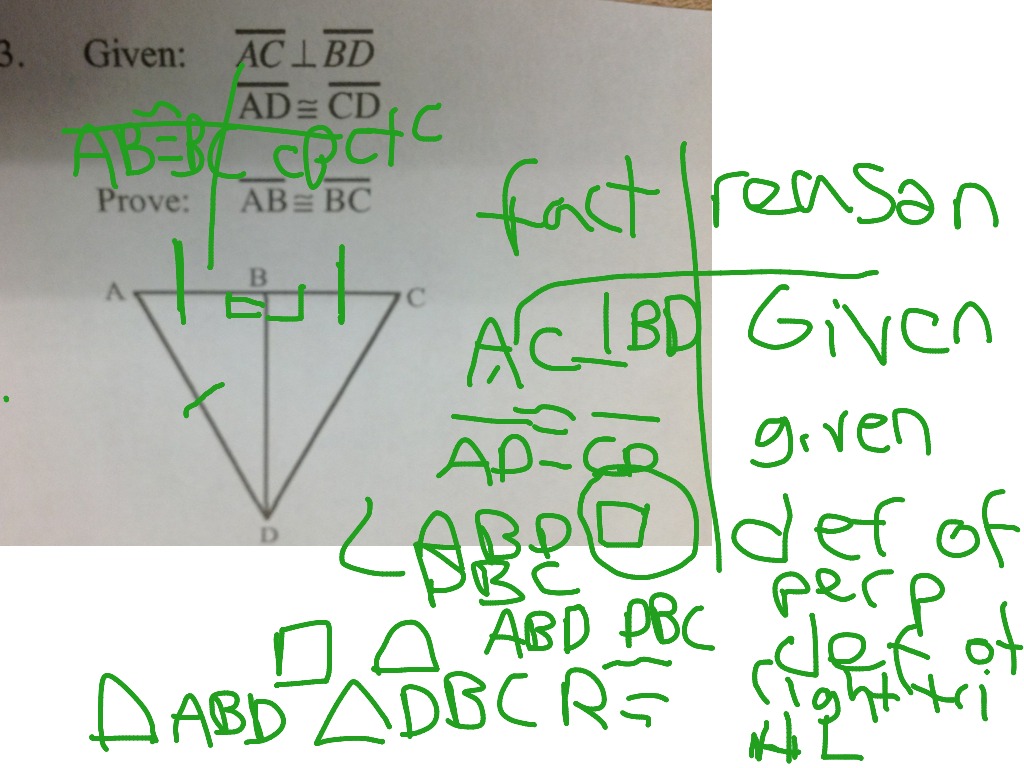 3. Given: AC ⊥ BD
AD ≅ CD
AB ≅ BC CPCTC
Prove: AB ≅ BC
A B C
D
fact reason
AC ⊥ BD Given
AD ≅ CD given
∠ ABD □ def of
DBC perp
□ △ ABD DBC def of
right tri
△ ABD △ DBC R ≅ HL